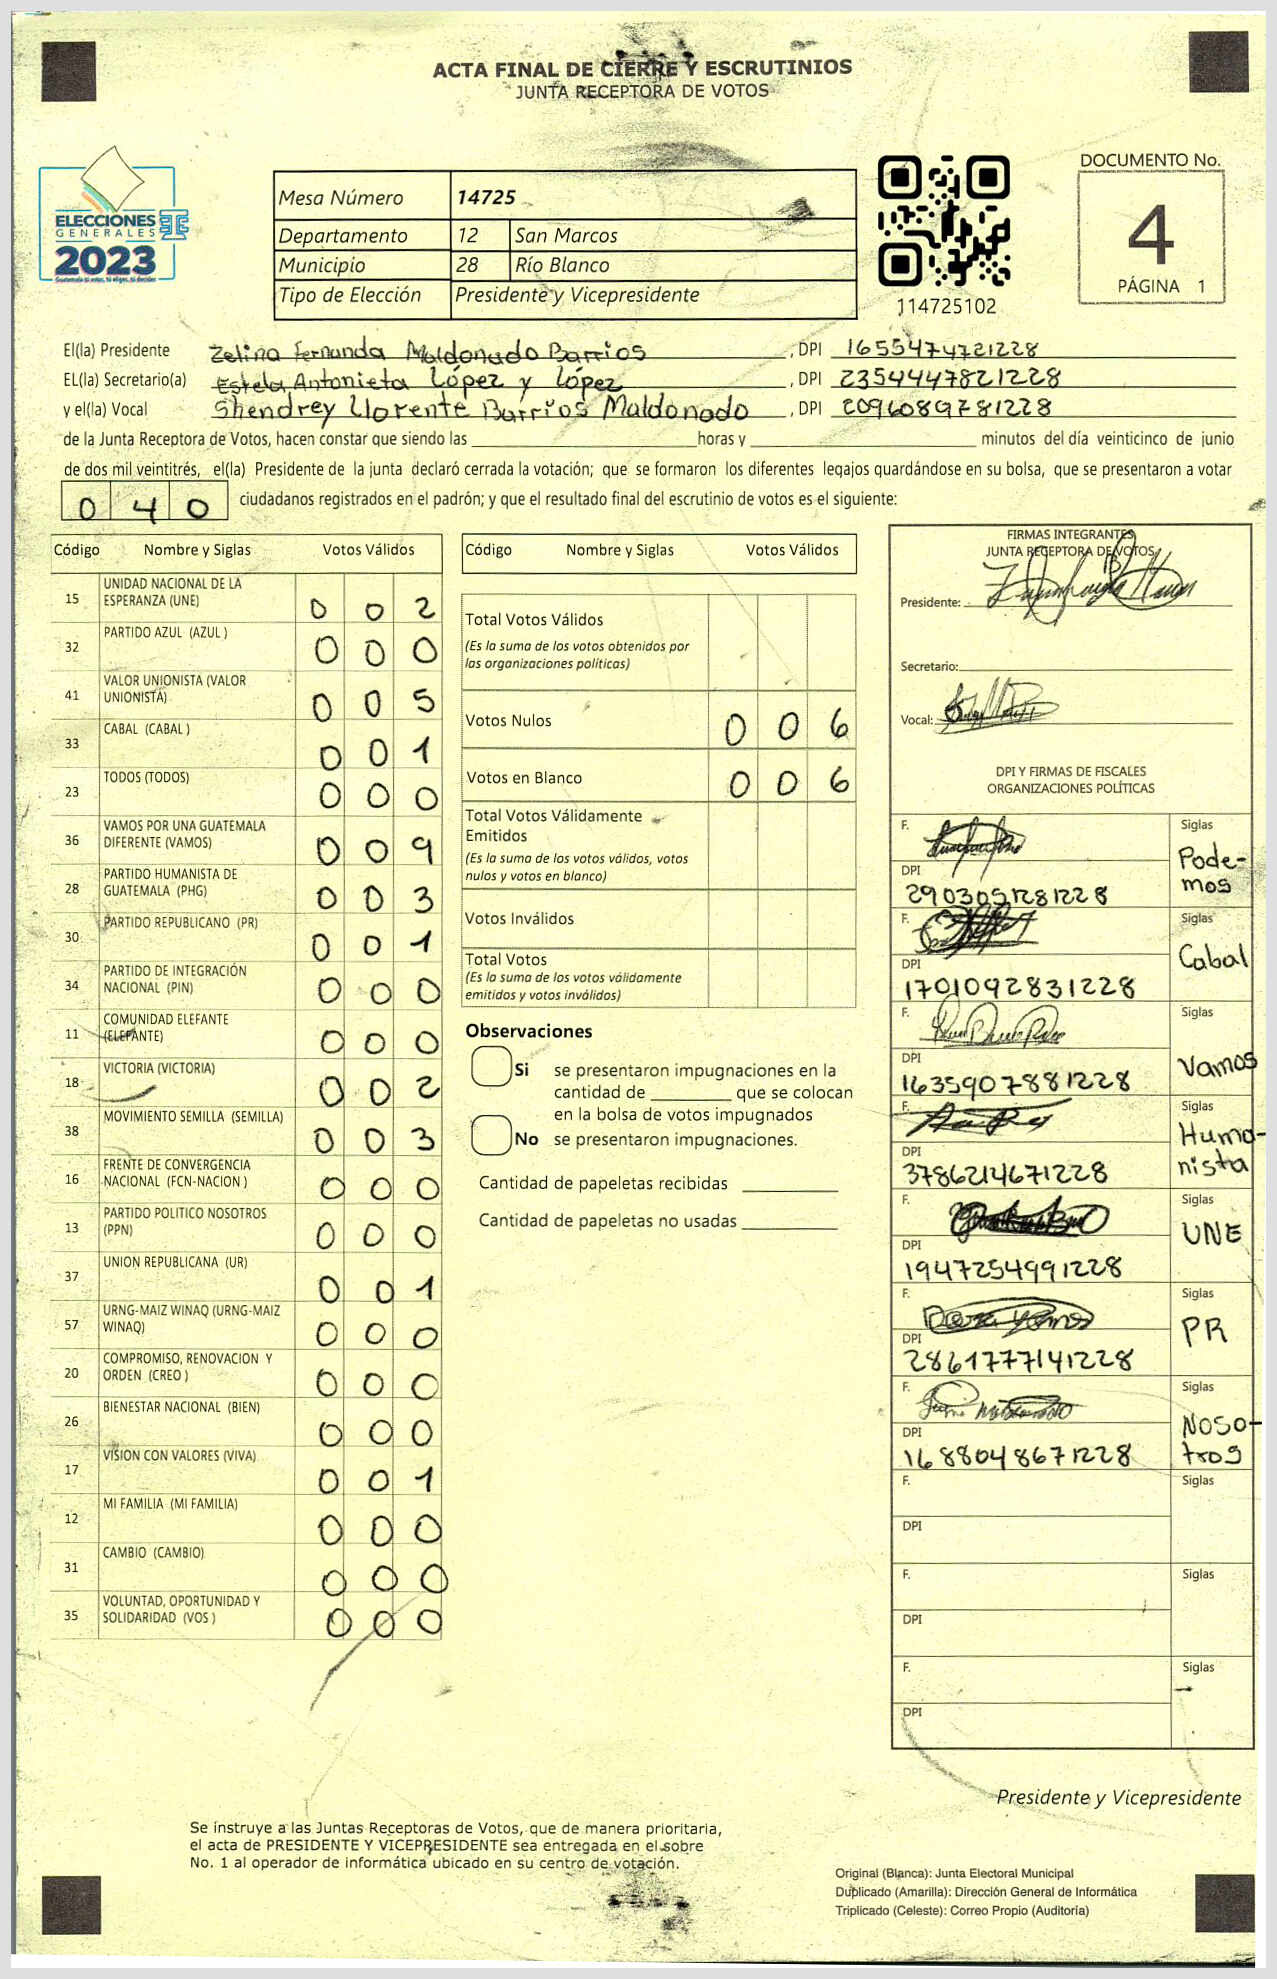 ACTA FINAL DE CIERRE Y ESCRUTINIOS
JUNTA RECEPTORA DE VOTOS
ELECCIONES
GENERALES
2023
Mesa Número 14725
Departamento 12 San Marcos
Municipio 28 Río Blanco
Tipo de Elección Presidente y Vicepresidente
114725102
DOCUMENTO No.
4
PÁGINA 1
El(la) Presidente Zelina Fernanda Maldonado Barrios, DPI 1655474721228
EL(la) Secretario(a) Estela Antonieta López y López, DPI 2354447821228
y el(la) Vocal Shendrey Llorente Barrios Maldonado, DPI 2096089781228
de la Junta Receptora de Votos, hacen constar que siendo las ____ horas y ____ minutos del día veinticinco de junio
de dos mil veintitrés, el(la) Presidente de la junta declaró cerrada la votación; que se formaron los diferentes legajos guardándose en su bolsa, que se presentaron a votar
040 ciudadanos registrados en el padrón; y que el resultado final del escrutinio de votos es el siguiente:
Código Nombre y Siglas Votos Válidos
15 UNIDAD NACIONAL DE LA
ESPERANZA (UNE) 0 0 2
32 PARTIDO AZUL (AZUL ) 0 0 0
41 VALOR UNIONISTA (VALOR
UNIONISTA) 0 0 5
33 CABAL (CABAL ) 0 0 1
23 TODOS (TODOS) 0 0 0
36 VAMOS POR UNA GUATEMALA
DIFERENTE (VAMOS) 0 0 9
28 PARTIDO HUMANISTA DE
GUATEMALA (PHG) 0 0 3
30 PARTIDO REPUBLICANO (PR) 0 0 1
34 PARTIDO DE INTEGRACIÓN
NACIONAL (PIN) 0 0 0
11 COMUNIDAD ELEFANTE
(ELEFANTE) 0 0 0
18 VICTORIA (VICTORIA) 0 0 2
38 MOVIMIENTO SEMILLA (SEMILLA) 0 0 3
16 FRENTE DE CONVERGENCIA
NACIONAL (FCN-NACION ) 0 0 0
13 PARTIDO POLITICO NOSOTROS
(PPN) 0 0 0
37 UNION REPUBLICANA (UR) 0 0 1
57 URNG-MAIZ WINAQ (URNG-MAIZ
WINAQ) 0 0 0
20 COMPROMISO, RENOVACION Y
ORDEN (CREO ) 0 0 0
26 BIENESTAR NACIONAL (BIEN) 0 0 0
17 VISION CON VALORES (VIVA) 0 0 1
12 MI FAMILIA (MI FAMILIA) 0 0 0
31 CAMBIO (CAMBIO) 0 0 0
35 VOLUNTAD, OPORTUNIDAD Y
SOLIDARIDAD (VOS ) 0 0 0
Código Nombre y Siglas Votos Válidos
Total Votos Válidos
(Es la suma de los votos obtenidos por
las organizaciones políticas)
Votos Nulos 0 0 6
Votos en Blanco 0 0 6
Total Votos Válidamente
Emitidos
(Es la suma de los votos válidos, votos
nulos y votos en blanco)
Votos Inválidos
Total Votos
(Es la suma de los votos válidamente
emitidos y votos inválidos)
Observaciones
Si se presentaron impugnaciones en la
cantidad de ____ que se colocan
en la bolsa de votos impugnados
No se presentaron impugnaciones.
Cantidad de papeletas recibidas
Cantidad de papeletas no usadas
FIRMAS INTEGRANTES
JUNTA RECEPTORA DE VOTOS
Presidente:
Secretario:
Vocal:
DPI Y FIRMAS DE FISCALES
ORGANIZACIONES POLÍTICAS
F. Siglas
Pode-
mos
DPI
2903051281228
F. Siglas
Cabal
DPI
1701092831228
F. Siglas
Vamos
DPI
1635907881228
F. Siglas
Huma-
nista
DPI
3786214671228
F. Siglas
UNE
DPI
1947254991228
F. Siglas
PR
DPI
2861777141228
F. Siglas
Noso-
tros
DPI
1688048671228
F. Siglas
DPI
F. Siglas
DPI
F. Siglas
DPI
Presidente y Vicepresidente
Se instruye a las Juntas Receptoras de Votos, que de manera prioritaria,
el acta de PRESIDENTE Y VICEPRESIDENTE sea entregada en el sobre
No. 1 al operador de informática ubicado en su centro de votación.
Original (Blanca): Junta Electoral Municipal
Duplicado (Amarilla): Dirección General de Informática
Triplicado (Celeste): Correo Propio (Auditoría)